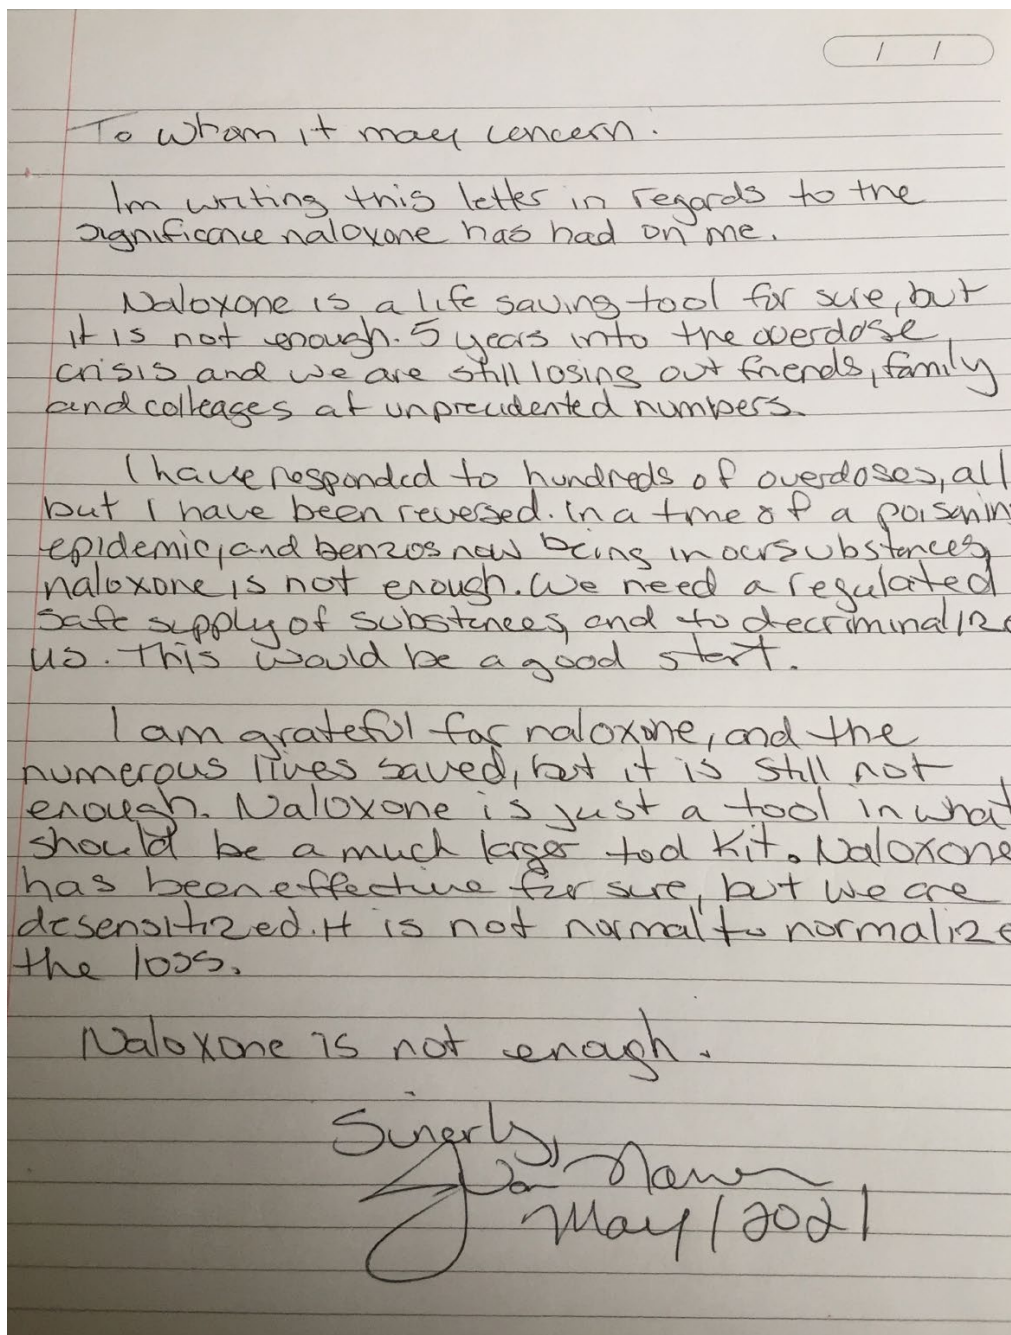 / /
To whom it may concern:
Im writing this letter in regards to the
significance naloxone has had on me.
Naloxone is a life saving tool for sure, but
it is not enough. 5 years into the overdose
crisis and we are still losing out friends, family
and colleages at unprecidented numbers.
I have responded to hundreds of overdoses, all
but 1 have been reversed. In a time of a poisonin
epidemic, and benzos now being in our substences,
naloxone is not enough. We need a regulated
safe supply of substences, and to decriminalize
us. This would be a good start.
I am grateful for naloxone, and the
numerous lives saved, but it is still not
enough. Naloxone is just a tool in what
should be a much larger tool kit. Naloxone
has been effective for sure, but we are
desensitized. It is not normal to normalize
the loss.
Naloxone is not enough.
Sinerly,
May / 2021